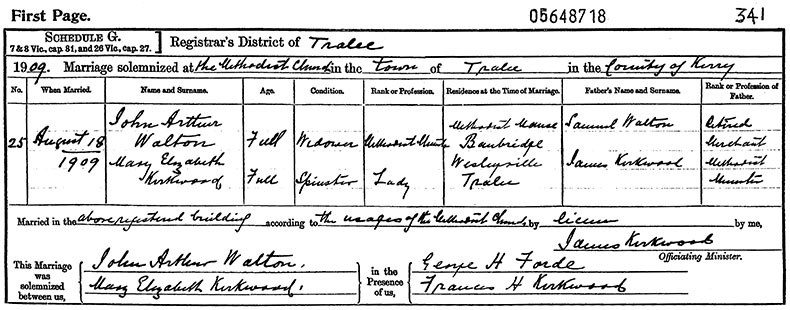 First Page. 05648718 341
SCHEDULE G.
7 & 8 Vic., cap. 81, and 26 Vic., cap. 27.
Registrar's District of Tralee
1909. Marriage solemnized at the Methodist Church in the town of Tralee in the County of Kerry
No. When Married. Name and Surname. Age. Condition. Rank or Profession. Residence at the Time of Marriage. Father's Name and Surname. Rank or Profession of Father.
25 August 18 1909
John Arthur Walton Full Widower Methodist Minister Methodist Manse Banbridge Samuel Walton Retired Merchant
Mary Elizabeth Kirkwood Full Spinster Lady Wesleyville Tralee James Kirkwood Methodist Minister
Married in the above registered building according to the usages of the Methodist Church by license by me,
James Kirkwood
Officiating Minister.
This Marriage was solemnized between us,
John Arthur Walton.
Mary Elizabeth Kirkwood.
in the Presence of us,
George H Forde
Frances H Kirkwood